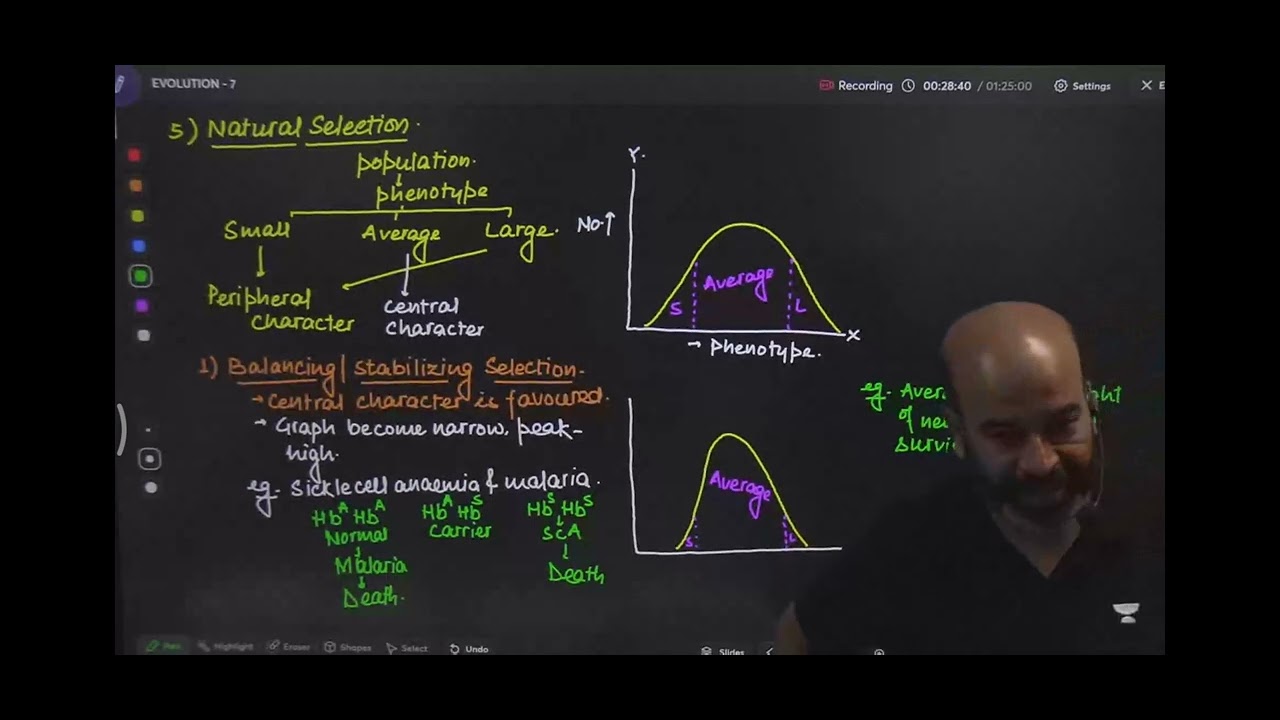 EVOLUTION - 7
Recording 00:28:40 / 01:25:00 Settings X E
5) Natural Selection.
population.
phenotype
Small Average Large.
Peripheral character
Central character
Y.
No.↑
S Average L
X
→ Phenotype.
1) Balancing/Stabilizing Selection-
→ Central character is favoured.
→ Graph become narrow, peak-
high.
eg- Sickle cell anaemia & malaria.
Hb^A Hb^A Hb^A Hb^S Hb^S Hb^S
Normal Carrier SCA
Malaria Death
Death.
S Average L
eg-
of
Pen Highlight Eraser Shapes Select Undo Slides